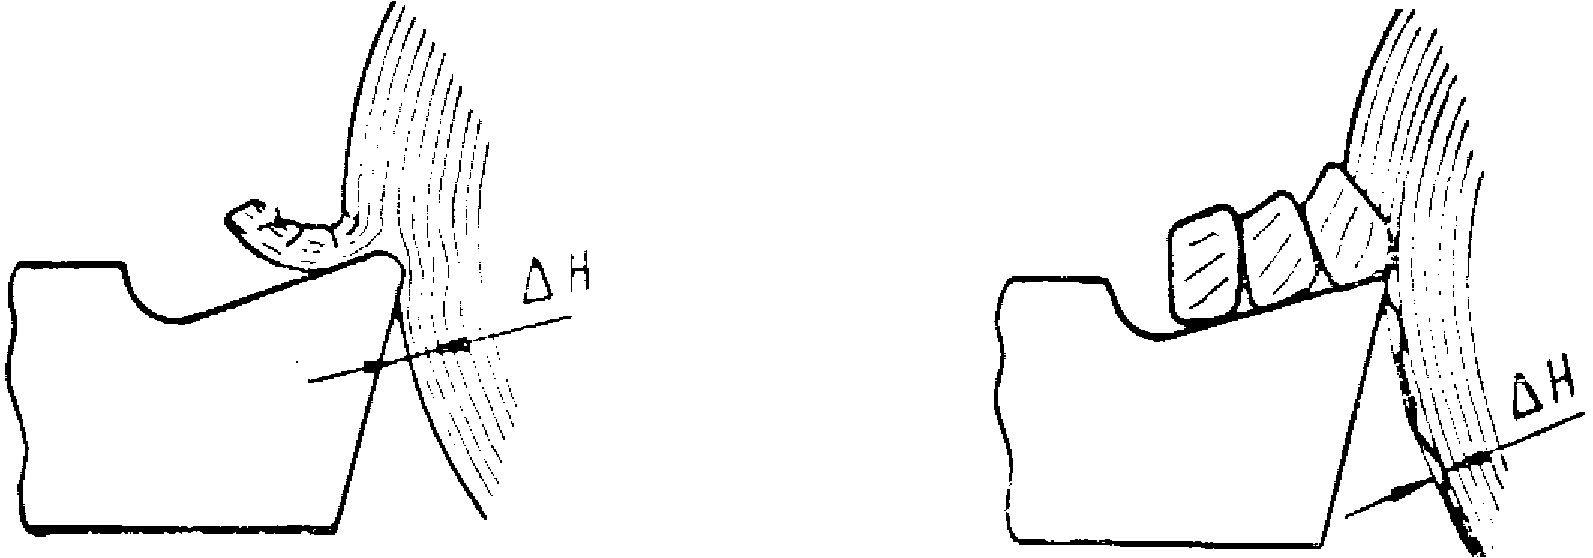 Δ H
Δ H